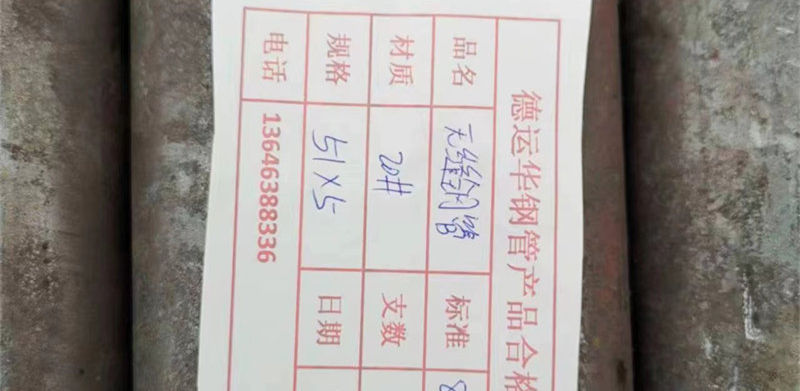 德运华钢管产品合格
品名 无缝钢管 标准 8
材质 20# 支数
规格 51×5 日期
电话 13646388336